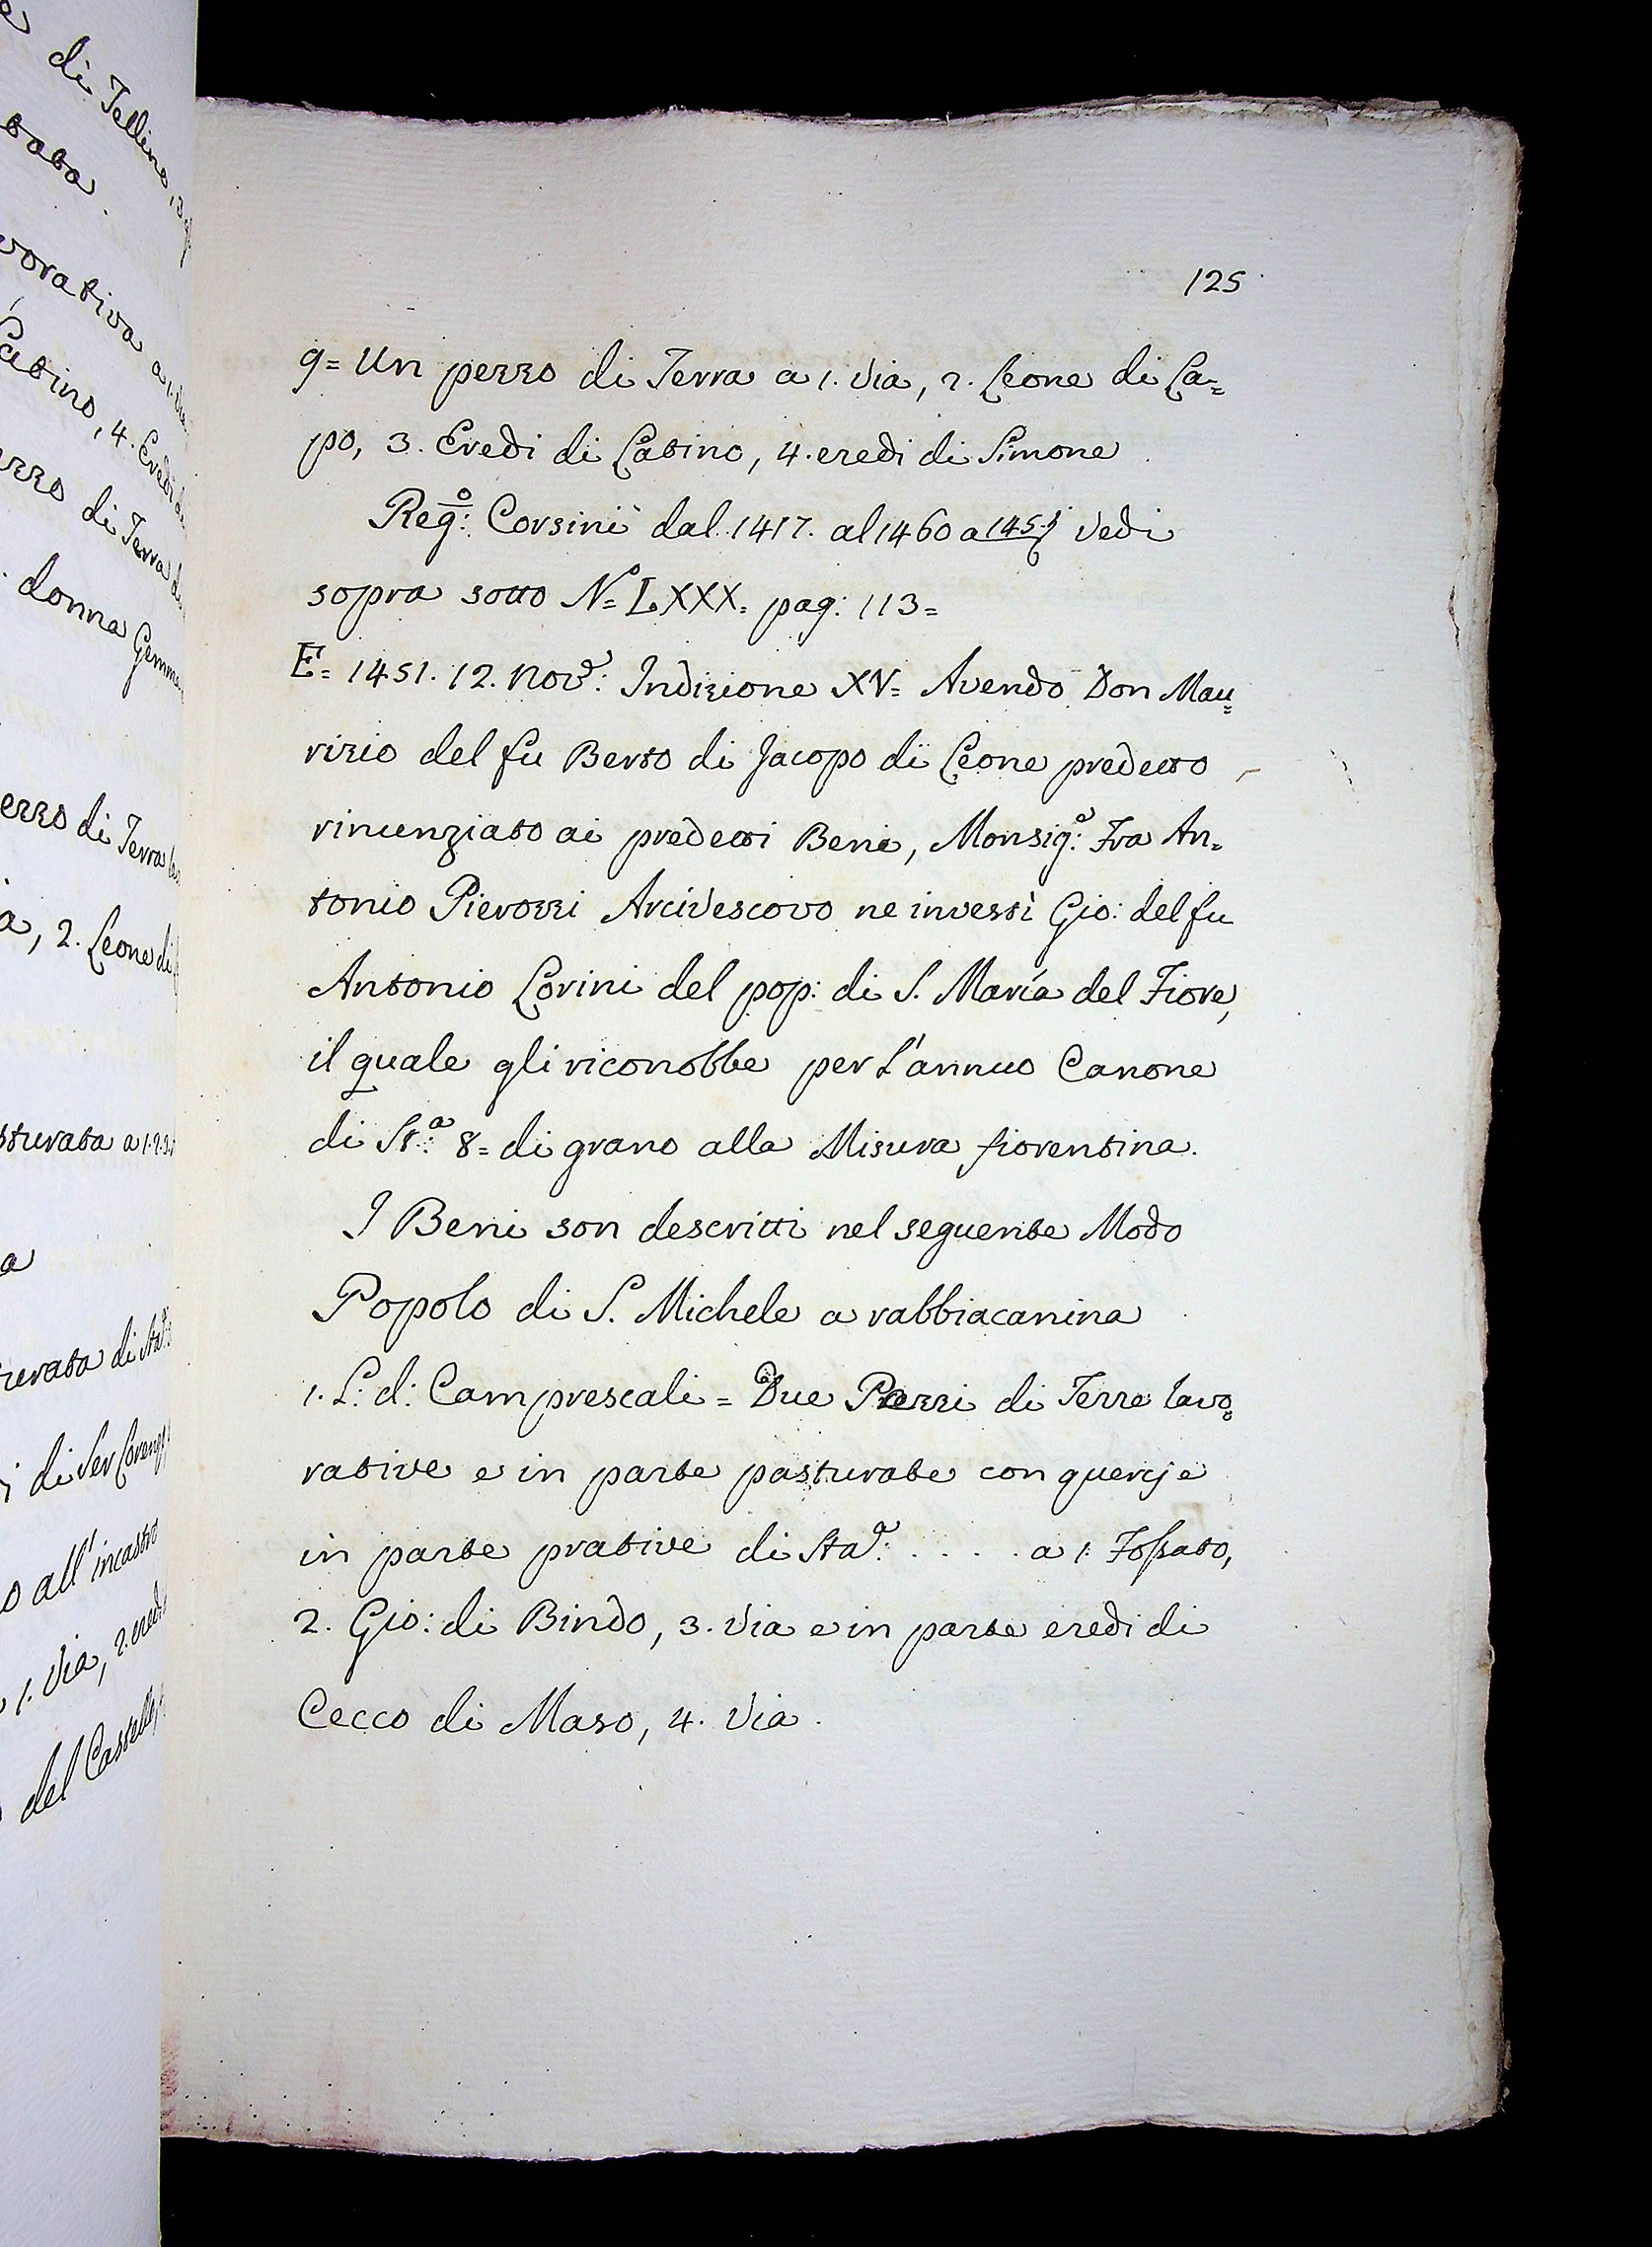 125
9= Un pezzo di Terra a 1. Via, 2. Leone di La=
po, 3. Eredi di Latino, 4. eredi di Simone
Reg.º: Corsini dal 1417. al 1460 a 145 vedi
sopra sotto Nº= LXXX= pag: 113=
E= 1451. 12. Nov.e: Indizione XV= Avendo Don Mau=
rizio del fu Berto di Jacopo di Leone predetto
rinunziato ai predetti Beni, Monsig.e: Fra An=
tonio Pierozzi Arcivescovo ne investì Gio: del fu
Antonio Lorini del pop: di S. Maria del Fiore,
il quale gli riconobbe per l'annuo Canone
di St.a: 8= di grano alla Misura fiorentina.
I Beni son descritti nel seguente Modo
Popolo di S. Michele a rabbiacanina
1. L: d: Camprescali = Due Pezzi di Terre lavo=
rative e in parte pasturate con quercje
in parte prative di Sta.a: . . . . . a 1. Fossato,
2. Gio: di Bindo, 3. Via e in parte eredi di
Cecco di Maso, 4. Via.
di Tellino,
vorativa a 1.
Latino, 4. Eredi di
di Terra
donna Gemma
di Terra
a, 2. Leone di
a
di Sta
di Ser Lorenzo
all'incastro
1. Via, 2. eredi
del Castello